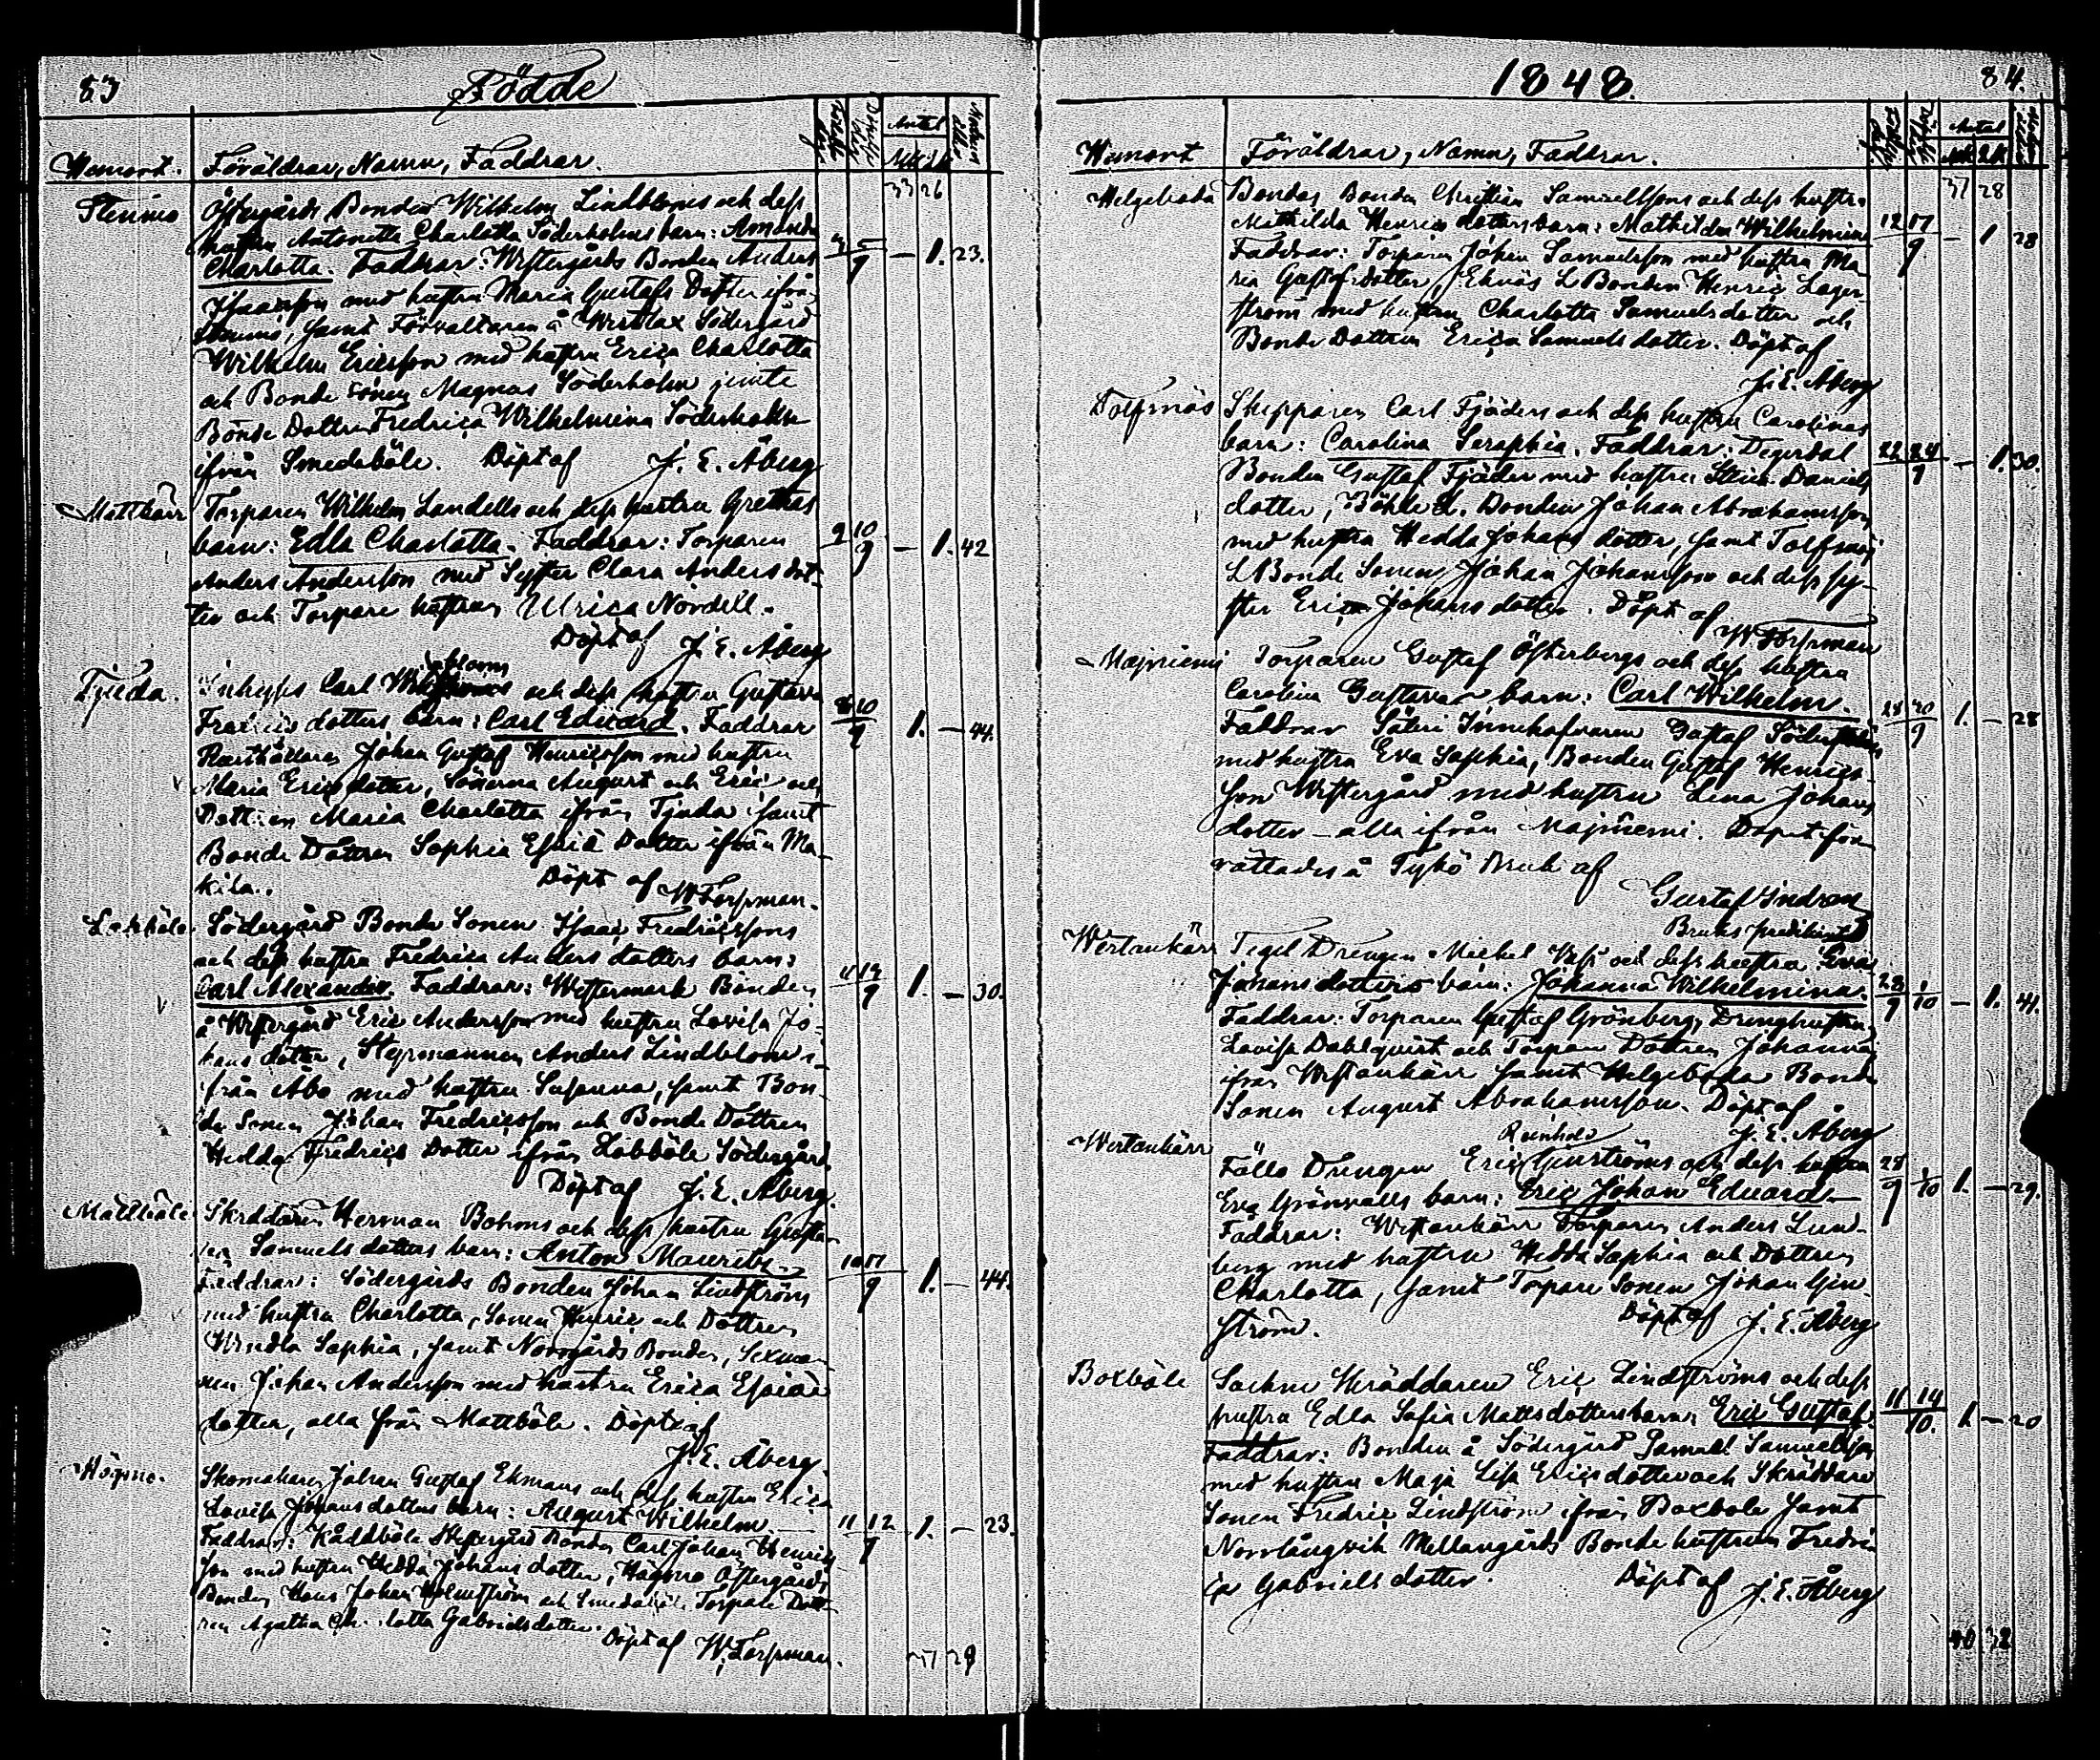 83 Födde
Hemort. Föräldrar, Namn, Faddrar. Antal
Mk Qk
33 26
Stenmo Östergårds Bonden Wilhelm Lindbloms och dess
hustru Antonetta Charlotta Söderholms barn: Amanda
Charlotta. Faddrar: Westergårds Bonden Anders 5 9 — 1. 23.
Isaacsson med hustru Maria Gustafs Dotter ifrån
Stenmo, samt Förvaltaren å Westlax Södergård
Wilhelm Ericsson med hustru Erica Charlotta
och Bonde Sonen Magnus Söderholm jemte
Bonde Dottren Fredrica Wilhelmina Söderholm
ifrån Smedsböle. Döpt af J. E. Åberg
Mattkärr Torparen Wilhelm Landells och dess hustru Grethas
barn: Edla Charlotta. Faddrar: Torparen 9 10 9 — 1. 42
Anders Andersson med Syster Clara Anders dot-
ter och Torpare hustrun Ulrica Nordell.
Döpt af J. E. Åberg
Tjuda. Inhyses Carl och dess hustru Gustava
Fredrics dotters barn: Carl Eduard. Faddrar 8 10 9 1. — 44.
Rusthållaren Johan Gustaf Henricsson med hustru
Maria Erics dotter, Sönerna August och Eric och
Dottren Maria Charlotta ifrån Tjuda samt
Bonde Dottren Sophia Esaiæ Dotter ifrån Ma-
kila. Döpt af W Forsman.
Labböle Södergård Bonde Sonen Isaac Fredricssons
och dess hustru Fredrica Anders dotters barn:
Carl Alexander. Faddrar: Westermark Bonden 11 12 9 1. — 30.
å Westergård Eric Andersson med hustru Lovisa Jo-
hans dotter, Styrmannen Anders Lindblom i-
från Åbo med hustru Susanna, samt Bon-
de Sonen Johan Fredricsson och Bonde Dottren
Hedda Fredrics Dotter ifrån Labböle Södergård
Döpt af J. E. Åberg.
Mattböle Skräddaren Herman Bohms och dess hustru Gusta-
va Samuels dotters barn: Anton Mauritz. 10 17 9 1. — 44.
Faddrar: Södergårds Bonden Johan Lindström
med hustru Charlotta, Sonen Henric och Dottren
Wendla Sophia, samt Norrgårds Bonden, Sexman-
nen Johan Andersson med hustru Erica Esaiæ
dotter, alla från Mattböle. Döpt af
J. E. Åberg.
Högmo. Skomakaren Johan Gustaf Ekmans och dess hustru Erica
Lovisa Johans dotters barn: August Wilhelm. 11 12 9 1. — 23.
Faddrar: Kåddböle Westergård Bonden Carl Johan Henrics
son med hustru Hedda Johans dotter, Högmo Östergårds
Bonden Hans Johan Holmström och Smedsböle Torpare Dott-
ren Agatha Charlotta Gabrielsdotter.
Döpt af W. Forsman.
37 28
1848. 84.
Hemort Föräldrar, Namn, Faddrar. Antal
Mk Qk
37 28
Helgeboda Bondas Bonden Christian Samuelssons och dess hustru
Mathilda Henrics dotters barn: Mathilda Wilhelmina 12 17 9 — 1 28
Faddrar: Torparen Johan Samuelsson med hustru Ma-
ria Gustafsdotter, Eknäs L Bonden Henric Lager-
ström med hustru Charlotta Samuelsdotter och
Bonde Dottren Erica Samuels dotter. Döpt af
J. E. Åberg
Tolfsnäs Skepparen Carl Fjäders och dess hustru Carolinas
barn: Carolina Seraphia. Faddrar: Degerdal 22 24 9 — 1. 30.
Bonden Gustaf Fjäder med hustru Stina Daniels
dotter, Böhle L. Bonden Johan Abrahamsson
med hustru Hedda Johans dotter, samt Tolfsnäs
L Bonde Sonen Johan Johansson och dess sy-
ster Erica Johans dotter. Döpt af
W Forsman
Majniemi Torparen Gustaf Österbergs och dess hustru
Carolina Gustavas barn: Carl Wilhelm. 28 30 9 1. — 28
Faddrar Säteri Innehafvaren Gustaf
med hustru Eva Sophia, Bonden Gustaf Henrics-
son Westergård med hustru Lena Johans
dotter — alla ifrån Majniemi. Dopet för-
rättades å Tykö Bruk af
Gustaf Indren
Bruks predikant
Wertankärr Tegel Drengen Michel och dess hustru Evas
Johansdotters barn: Johanna Wilhelmina. 28 9 1 10 — 1. 41.
Faddrar: Torparen Gustaf Grönberg, Drenghustrun
Lovisa Dahlqvist och Torpare Dottren Johanna
ifrån Westankärr samt Helgeboda Bonde
Sonen August Abrahamsson. Döpt af
J. E. Åberg
Reinhold
Wertankärr Fälle Drengen Eric Genströms och dess hustru 28
Eva Grönvalls barn: Eric Johan Eduard 9 1 10 1. — 29.
Faddrar: Westankärr Torparen Anders Lund-
berg med hustru Hedda Sophia och Dottren
Charlotta, samt Torpare Sonen Johan Gen-
ström. Döpt af J. E. Åberg
Boxböle Sockne Skräddaren Eric Lindströms och dess
hustru Edla Sofia Mattsdotters barn Eric Gustaf. 11 14 10. 1 — 20
Faddrar: Bonden å Södergård Samuel Samuelsson
med hustru Maja Lisa Ericsdotter och Skräddare
Sonen Fredric Lindström ifrån Boxböle samt
Norrlångvik Mellangårds Bonde hustrun Fredri-
ca Gabriels dotter. Döpt af J. E. Åberg
40 32